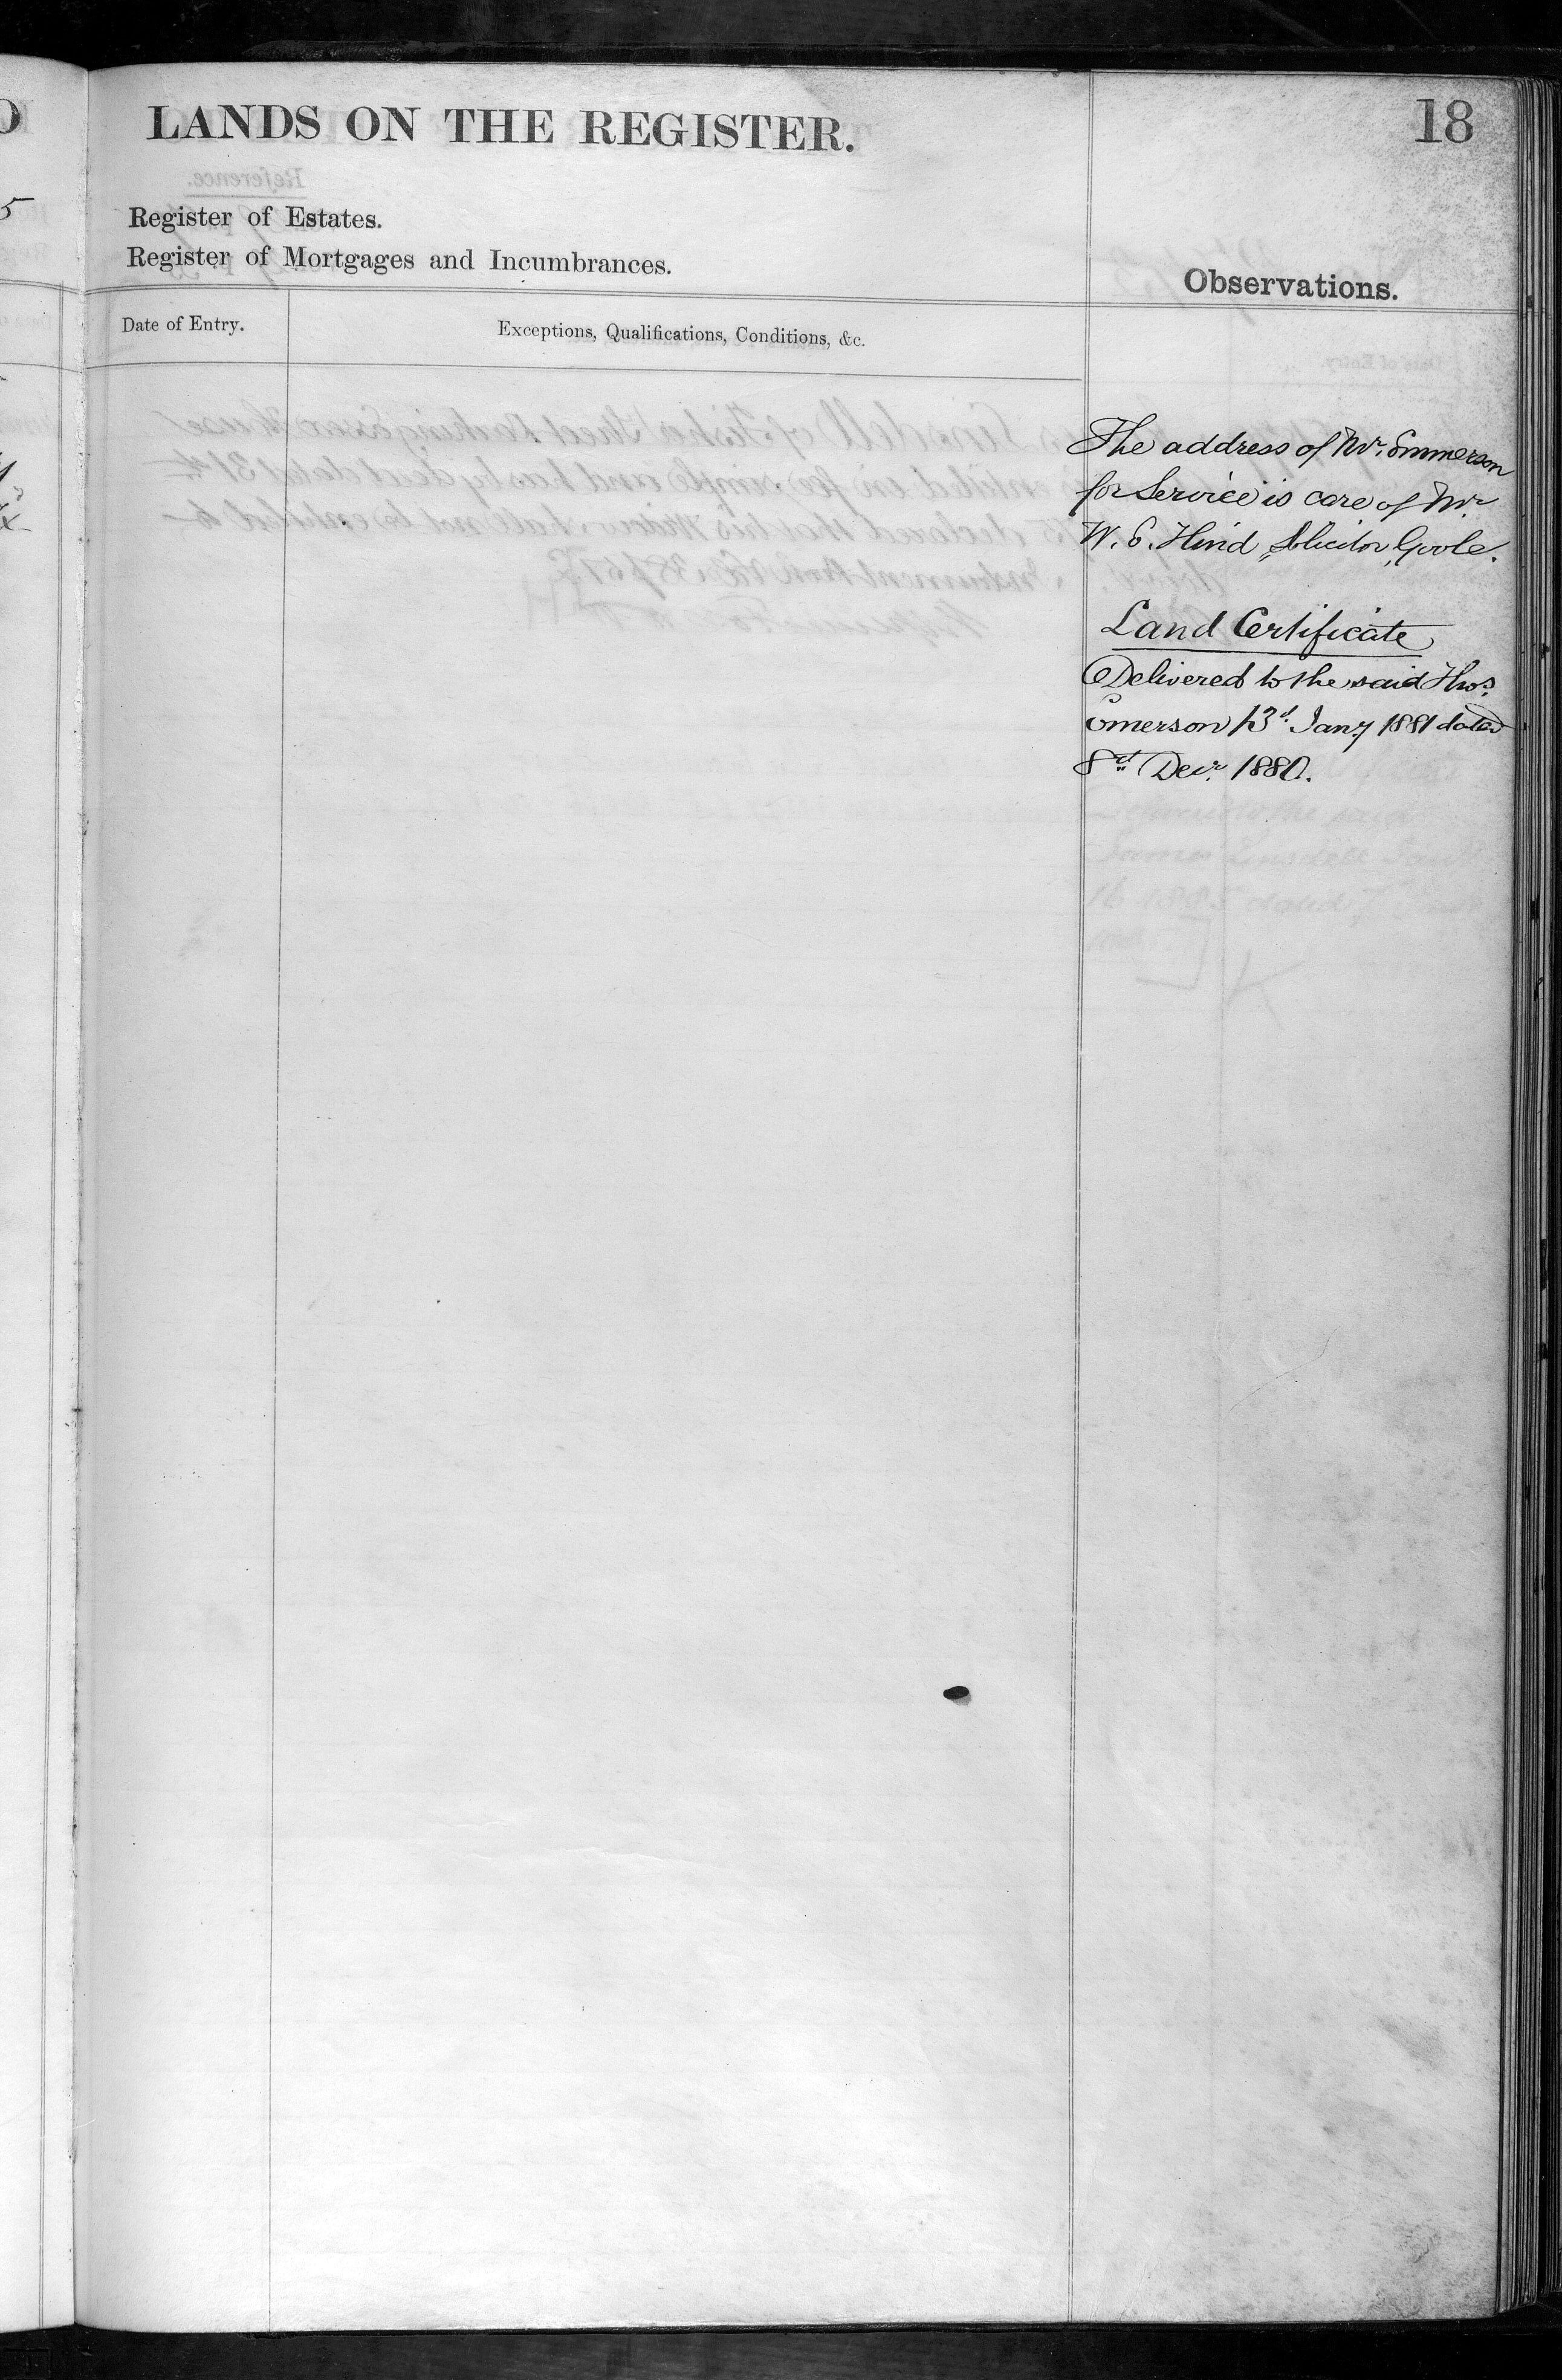 LANDS ON THE REGISTER.
18
Register of Estates.
Register of Mortgages and Incumbrances.
Observations.
Date of Entry.
Exceptions, Qualifications, Conditions, &c.
The address of Mr. Emmerson
for Service is care of Mr
W. E. Hind, Solicitor, Goole.
Land Certificate
Delivered to the said Thos.
Emerson 13th Jany 1881 dated
8th Decr. 1880.